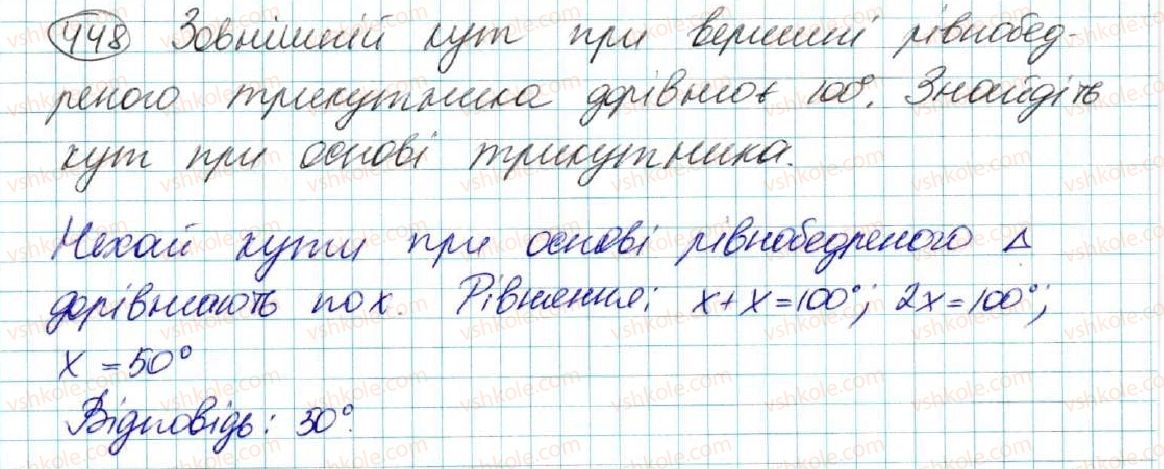 448 Зовнішній кут при вершині рівнобед-
реного трикутника дорівнює 100°. Знайдіть
кут при основі трикутника.
Нехай кути при основі рівнобедреного Δ
дорівнюють по x. Рівняння: x+x=100°; 2x=100°;
x = 50°
Відповідь: 50°.